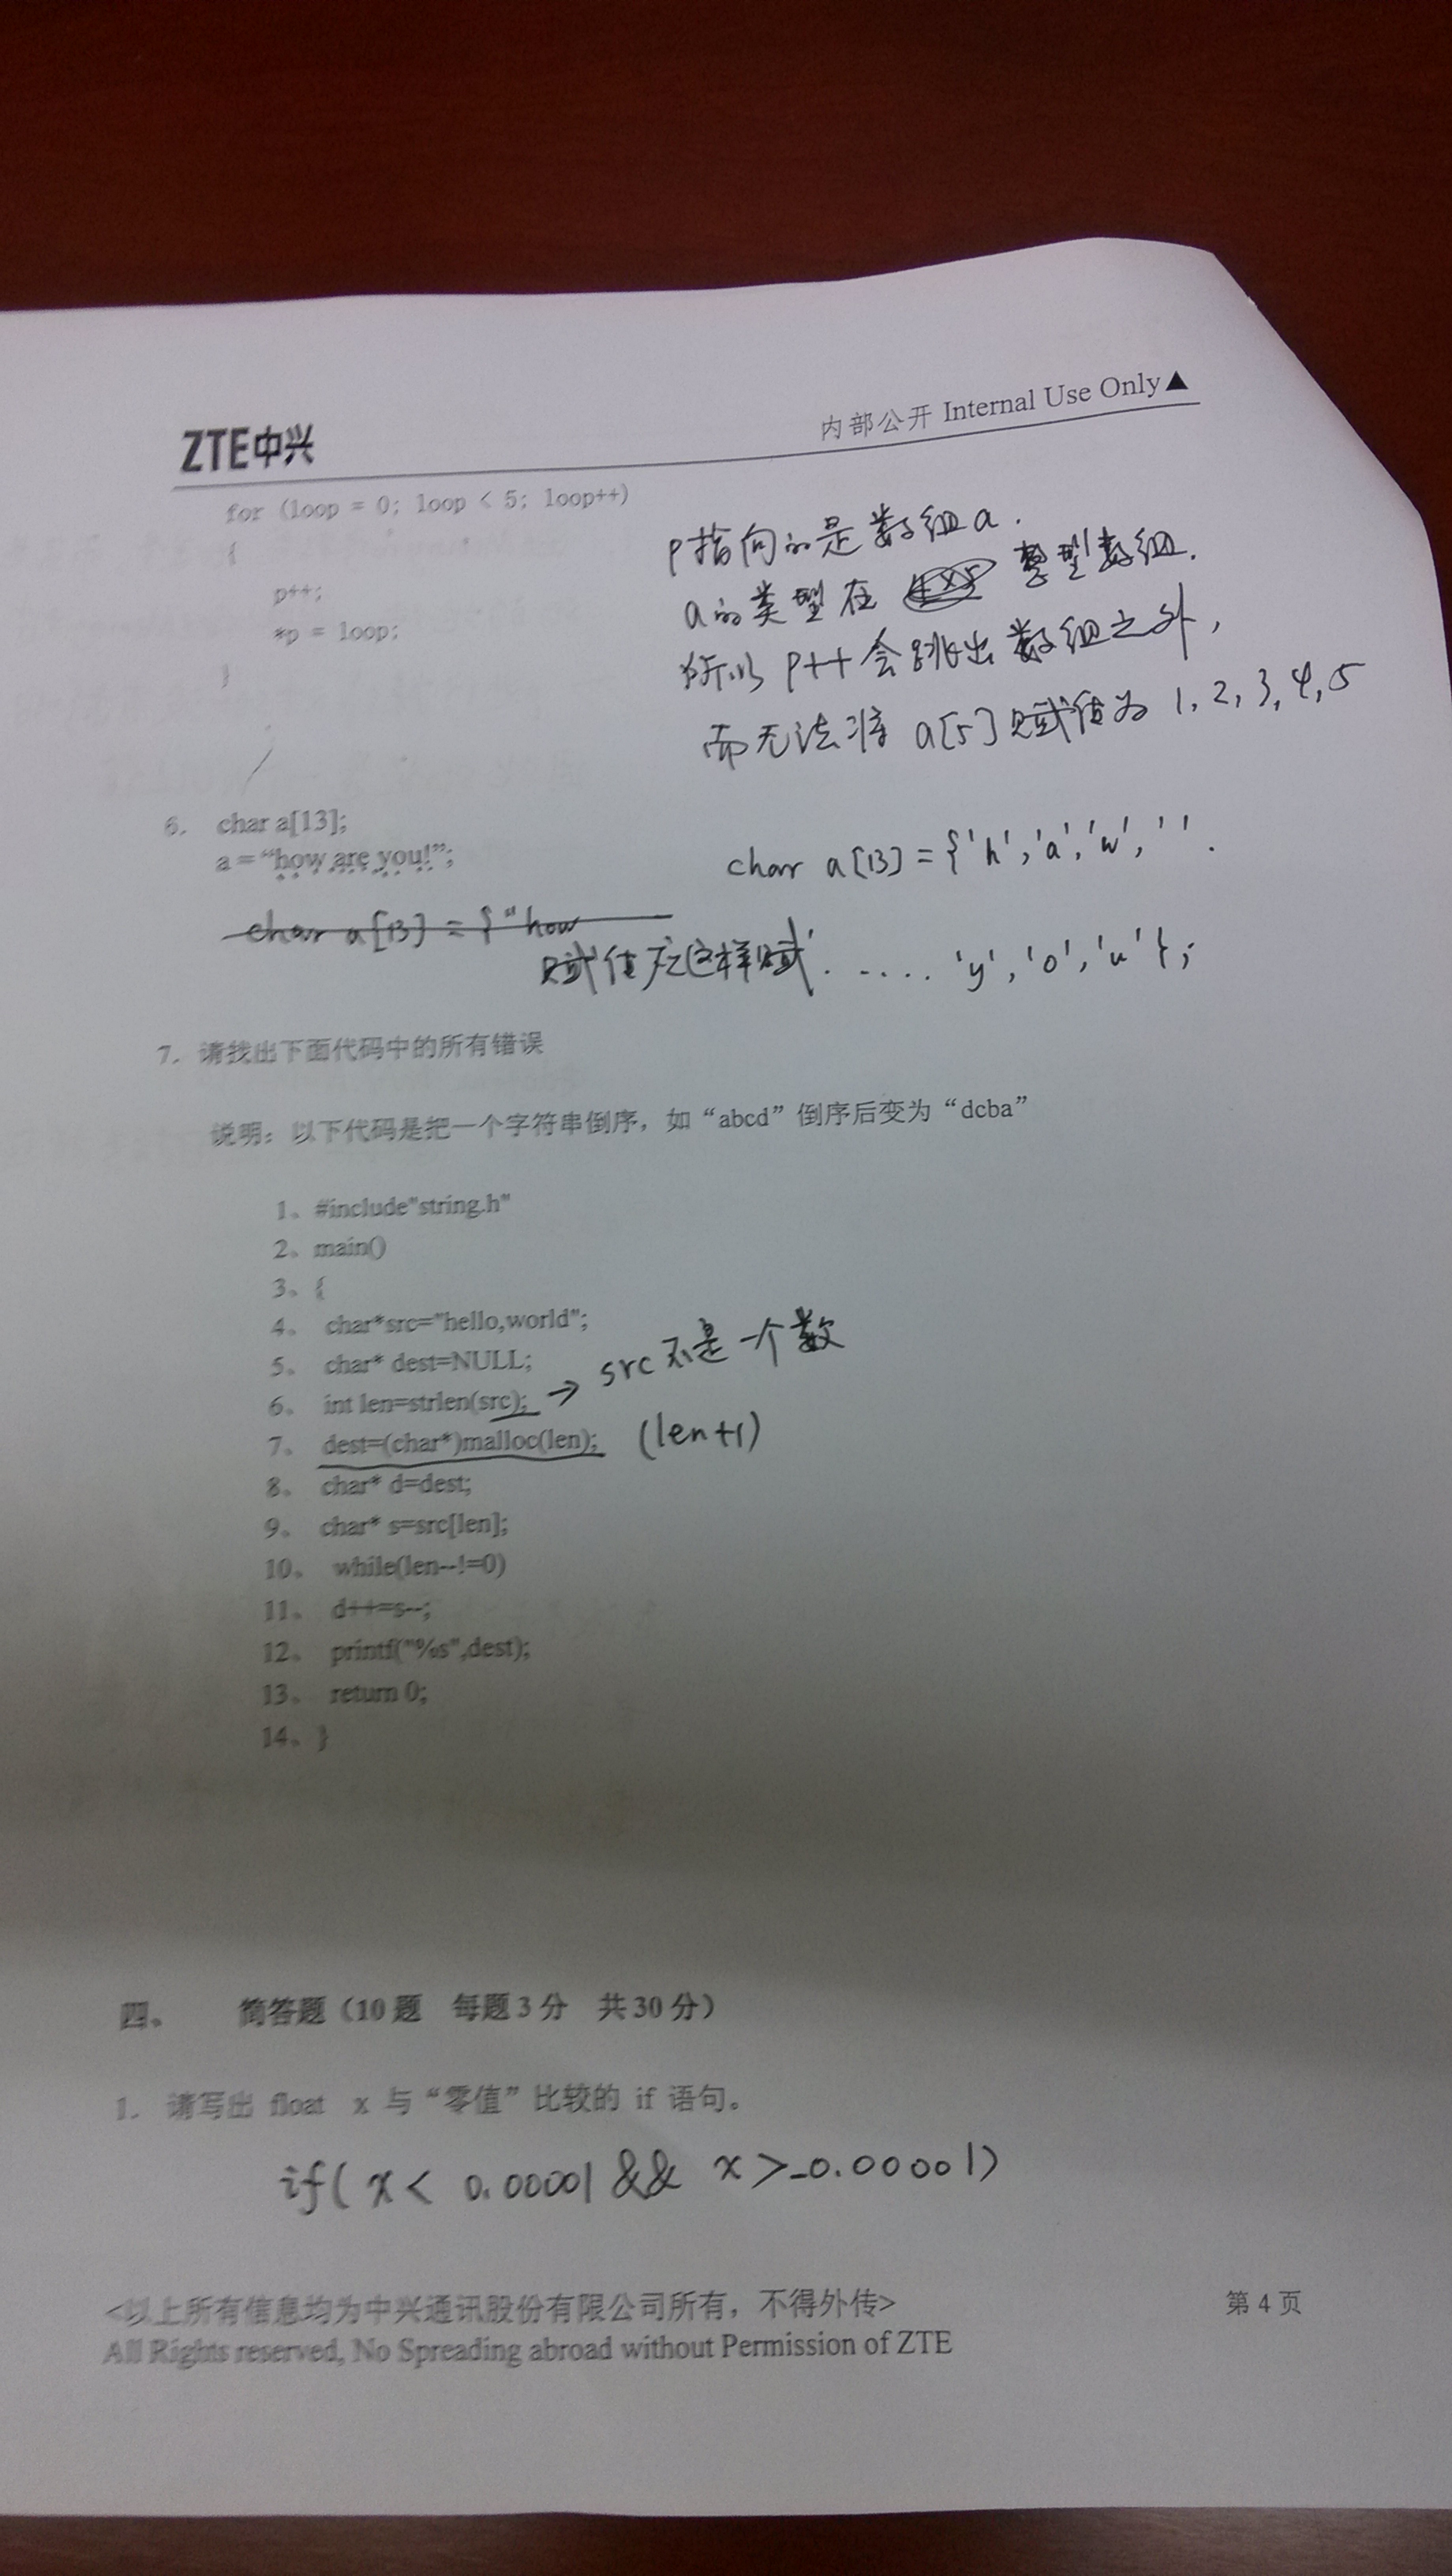 ZTE中兴
内部公开 Internal Use Only▲
for (loop = 0; loop < 5; loop++)
{
p++;
*p = loop;
}
p指向的是数组a.
a的类型在 整型数组.
所以 p++会跳出数组之外,
而无法将 a[5]赋值为 1, 2, 3, 4, 5
6. char a[13];
a = “how are you!”;
char a[13] = {'h','a','w',' '.
char a[13] = {"how
赋值应这样赋. ..... 'y','o','u'};
7. 请找出下面代码中的所有错误
说明：以下代码是把一个字符串倒序，如“abcd”倒序后变为“dcba”
1、#include"string.h"
2、main()
3、{
4、 char*src="hello,world";
5、 char* dest=NULL;
6、 int len=strlen(src); → src不是一个数
7、 dest=(char*)malloc(len); (len+1)
8、 char* d=dest;
9、 char* s=src[len];
10、 while(len--!=0)
11、 d++=s--;
12、 printf("%s",dest);
13、 return 0;
14、}
四、 简答题（10 题 每题 3 分 共 30 分）
1. 请写出 float x 与“零值”比较的 if 语句。
if( x < 0.00001 && x >-0.00001)
<以上所有信息均为中兴通讯股份有限公司所有，不得外传>
第 4 页
All Rights reserved, No Spreading abroad without Permission of ZTE